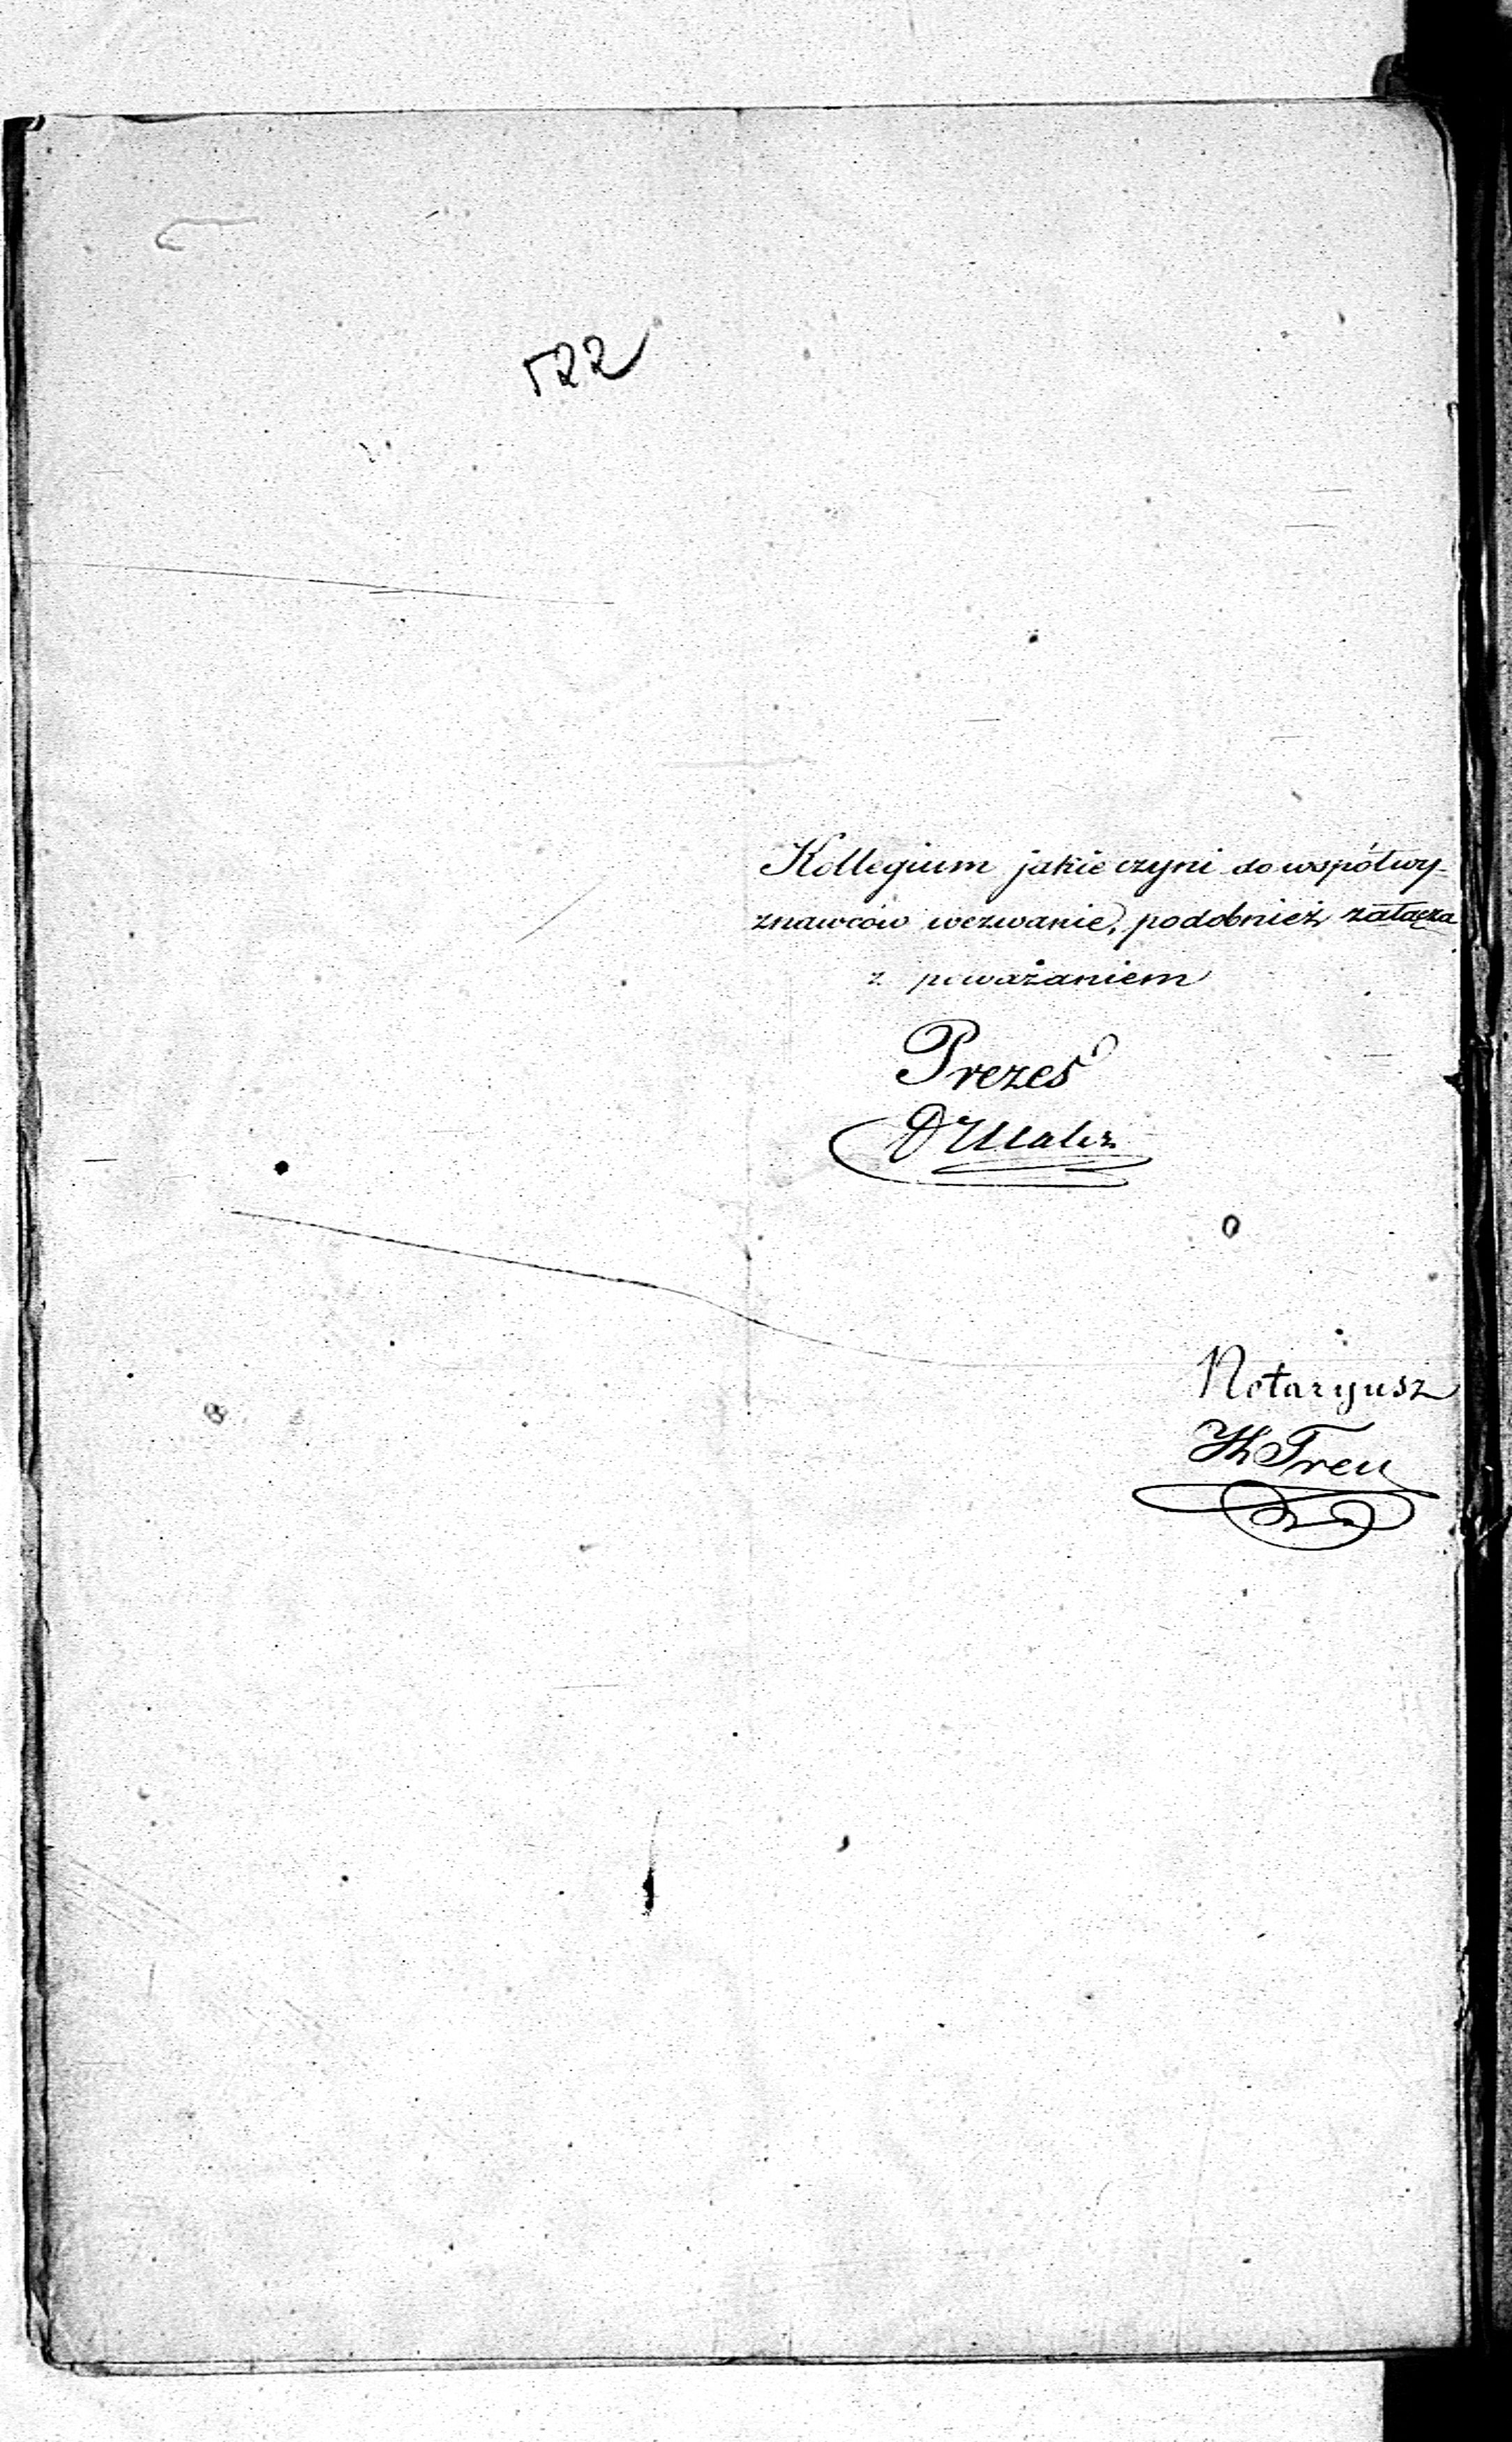 522
Kollegium jakie czyni do współwy-
znawców wezwanie, podobnież załącza
z poważaniem
Prezes
Notaryusz
Treu